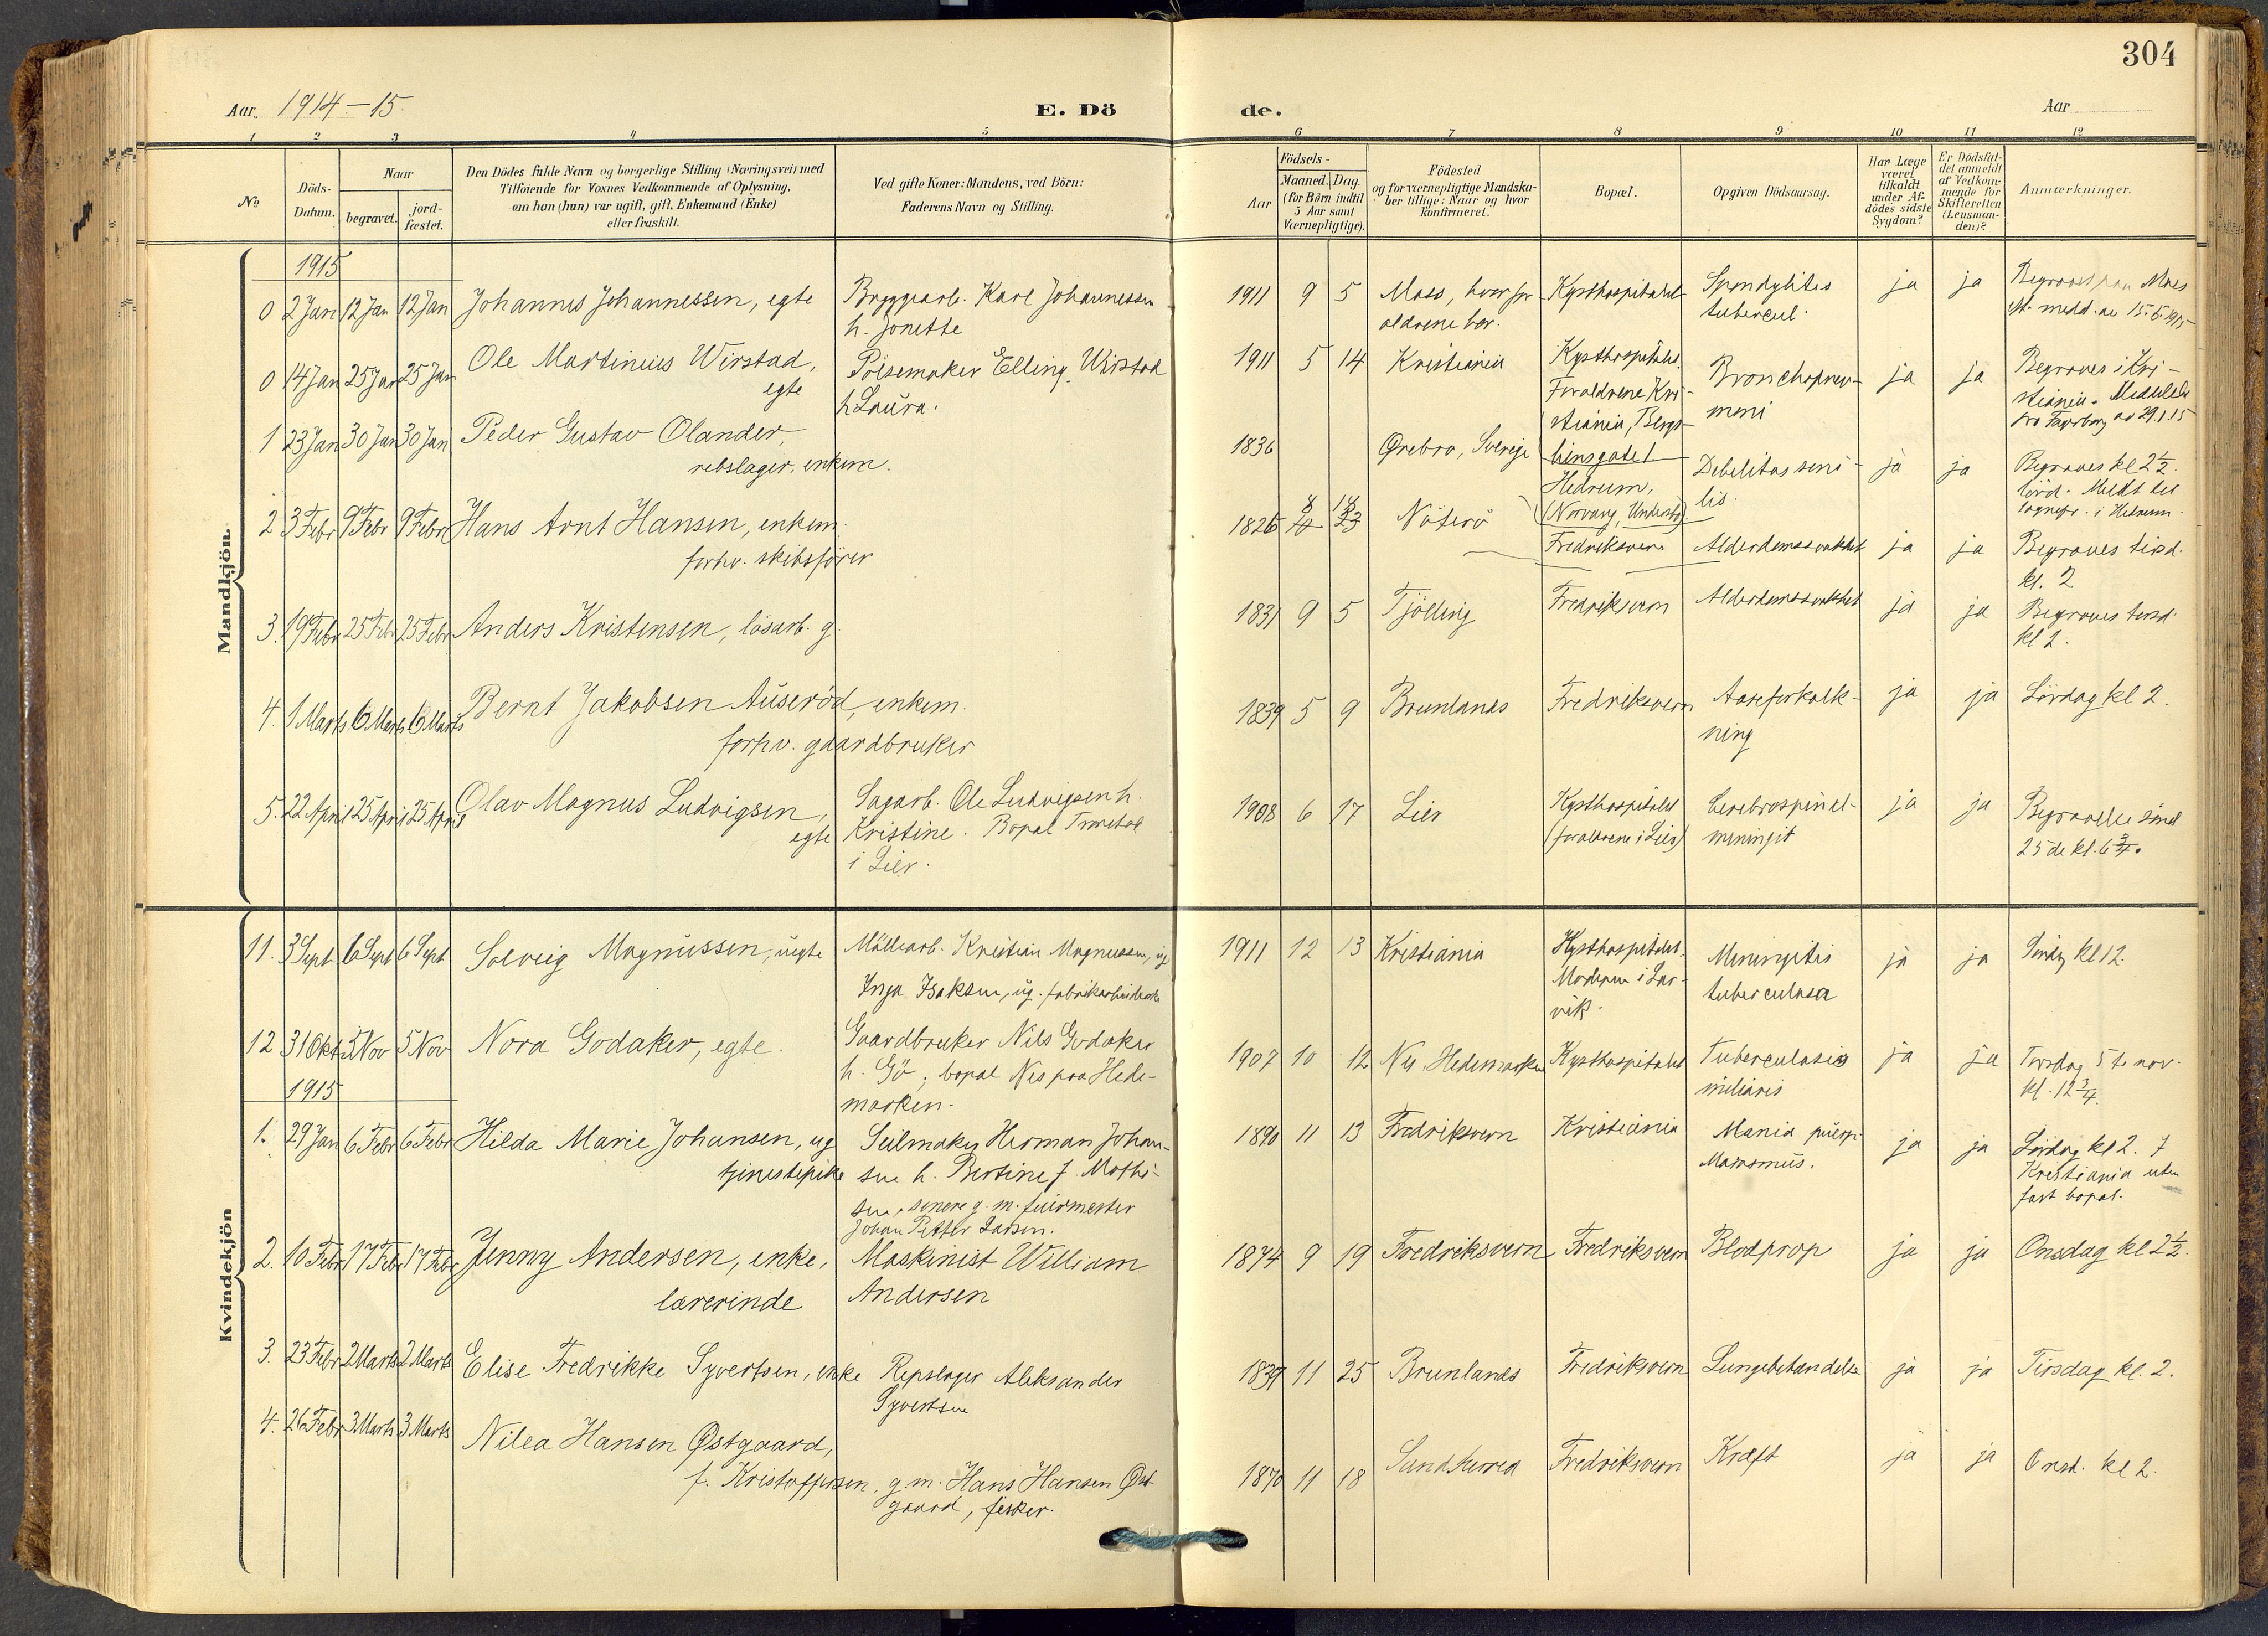 304
Aar. 1914-15.
E. Dö de.
Aar
1 2 3 4 5 6 7 8 9 10 11 12
No
Döds-Datum.
Naar
begravet.
jord-fæstet.
Den Dödes fulde Navn og borgerlige Stilling (Næringsvei) med
Tilföiende for Voxnes Vedkommende af Oplysning,
om han (hun) var ugift, gift, Enkemand (Enke)
eller fraskilt.
Ved gifte Koner: Mandens, ved Börn:
Faderens Navn og Stilling.
Födsels-
Aar
Maaned. Dag.
(for Börn indtil
5 Aar samt
Værnepligtige).
Födested
og for værnepligtige Mandska-
ber tillige: Naar og hvor
konfirmeret.
Bopæl.
Opgiven Dödsaarsag.
Har Læge
været
tilkaldt
under Af-
dödes sidste
Sygdom?
Er Dödsfal-
det anmeldt
af Vedkom-
mende for
Skifteretten
(Lensman-
den)?
Anmærkninger.
Mandkjön.
1915
0 2 Jan 12 Jan 12 Jan Johannes Johannessen, egte Bryggearb. Karl Johannessen 1911 9 5 Moss, hvor for- Kysthospitalet Spondylitis ja ja Begraves paa Moss
h. Jonette
ældrene bor.
tubercul.
ifl. medd. av 15.6.1915
0 14 Jan 25 Jan 25 Jan Ole Martinius Wirstad, Pölsemaker Elling Wirstad 1911 5 14 Kristiania Kysthospitalet. Bronchopneu- ja ja Begraves i Kri-
egte
h Laura.
Forældrene Kri-
moni
stiania. Meddelels
stiania, Bergs-
fra Fagerborg av 29.1.15
1 23 Jan 30 Jan 30 Jan Peder Gustav Olander, 1836 Ørebro, Sverige liensgate 1 Debelitas seni- ja ja Begraves kl 2½.
rebslager, enkem.
Hedrum,
lis.
lörd. Meldt til
(Norvang, Undersbo)
sognepr. i Hedrum.
2 3 Febr 9 Febr 9 Febr Hans Arnt Hansen, enkem. 1826 8 4 18 23 Nöterö Fredriksvern Alderdomssvakhet ja ja Begraves tirsd.
forhv. skibsförer
kl. 2
3. 19 Febr 25 Febr 25 Febr Anders Kristensen, lösarb. g. 1831 9 5 Tjölling Fredriksvern Alderdomssvakhet ja ja Begraves torsd.
kl 2.
4. 1 Marts 6 Marts 6 Marts Bernt Jakobsen Auseröd, enkem. 1839 5 9 Brunlanes Fredriksvern Aareforkalk- ja ja Lördag kl 2.
forhv. gaardbruker
ning
5. 22 April 25 April 25 April Olav Magnus Ludvigsen, Sagarb. Ole Ludvigsen h. 1908 6 17 Lier Kysthospitalet Cerebrospinal- ja ja Begravelse sönd
egte
Kristine. Bopæl
(forældrene i Lier)
meningit
25 de kl. 6¾.
i Lier.
Kvindekjön
11. 3 Sept 6 Sept 6 Sept Solveig Magnussen, uegte Möllearb. Kristian Magnussen, ug 1911 12 13 Kristiania Kysthospitalet. Meningitis ja ja Söndag kl 12.
Inga Isaksen, ug. fabrikarbeiderske
Moderen i Lar-
tuberculosa
vik.
12 31 Okt 5 Nov 5 Nov Nora Godaker, egte. Gaardbruker Nils Godaker 1907 10 12 Nes, Hedemarken Kysthospitalet Tuberculosis ja ja Torsdag 5te nov.
h. Gö, bopæl Nes paa Hede-
miliaris
kl. 12¾.
marken.
1915
1. 29 Jan 6 Febr 6 Febr Hilda Marie Johansen, ug Seilmaker Herman Johan- 1890 11 13 Fredriksvern Kristiania Mania puerp. ja ja Lördag kl 2. I
tjenestepike
sen h. Bertine f. Mathi-
Marasmus.
Kristiania uten
sen, senere g. m. fuirmester
fast bopæl.
Johan Petter Larsen.
2. 10 Febr 17 Febr 17 Febr Jenny Andersen, enke, Maskinist William 1874 9 19 Fredriksvern Fredriksvern Blodprop ja ja Onsdag kl 2½.
lærerinde
Andersen
3. 23 Febr 2 Marts 2 Marts Elise Fredrikke Syvertsen, enke Repslager Aleksander 1839 11 25 Brunlanes Fredriksvern Lungebetændelse ja ja Tirsdag kl. 2.
Syvertsen
4. 26 Febr 3 Marts 3 Marts Nilea Hansen Østgaard, 1870 11 18 Sandherred Fredriksvern Kræft ja ja Onsd. kl 2.
f. Kristoffersen, g m. Hans Hansen Øst
gaard, fisker.